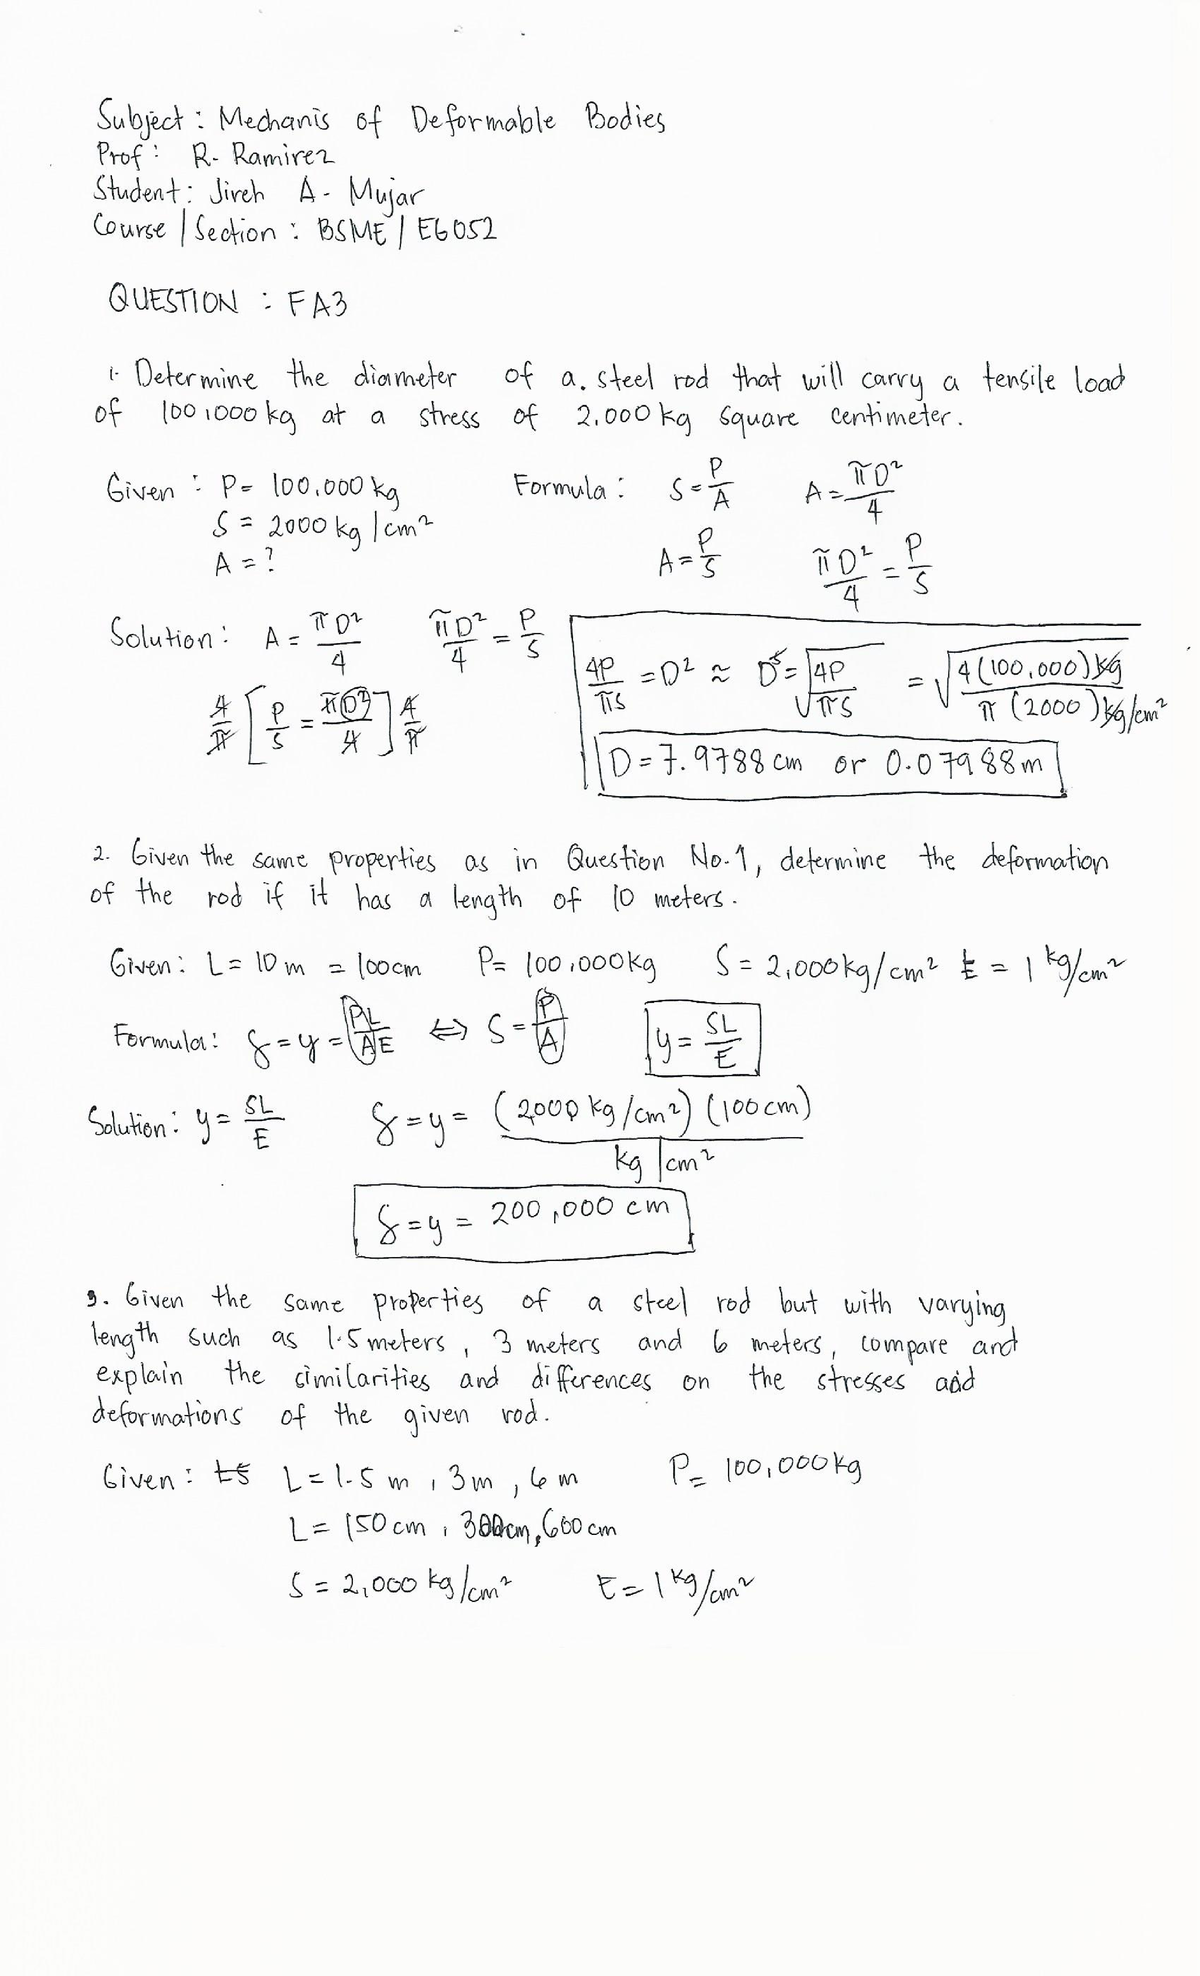 Subject : Mechanis of Deformable Bodies
Prof : R. Ramirez
Student : Jireh A. Mujar
Course / Section : BSME / E6052
QUESTION : FA3
1. Determine the diameter of a steel rod that will carry a tensile load
of 100,000 kg at a stress of 2,000 kg square centimeter.
Given : P = 100,000 kg Formula : S = P/A A = πD²/4
S = 2000 kg/cm²
A = ? A = P/S πD²/4 = P/S
Solution : A = πD²/4 πD²/4 = P/S
4/π [ P/S = πD²/4 ] 4/π 4P/πS = D² ≈ D = √4P/πS = √4(100,000)kg/π(2000)kg/cm²
D = 7.9788 cm or 0.07988 m
2. Given the same properties as in Question No. 1, determine the deformation
of the rod if it has a length of 10 meters.
Given : L = 10 m = 100 cm P = 100,000 kg S = 2,000 kg/cm² E = 1 kg/cm²
Formula : δ = y = PL/AE ⇔ S = P/A y = SL/E
Solution : y = SL/E δ = y = (2000 kg/cm²) (100 cm)/kg/cm²
δ = y = 200,000 cm
3. Given the same properties of a steel rod but with varying
length such as 1.5 meters, 3 meters and 6 meters, compare and
explain the similarities and differences on the stresses and
deformations of the given rod.
Given : L = 1.5 m, 3 m, 6 m P = 100,000 kg
L = 150 cm, 300 cm, 600 cm
S = 2,000 kg/cm² E = 1 kg/cm²